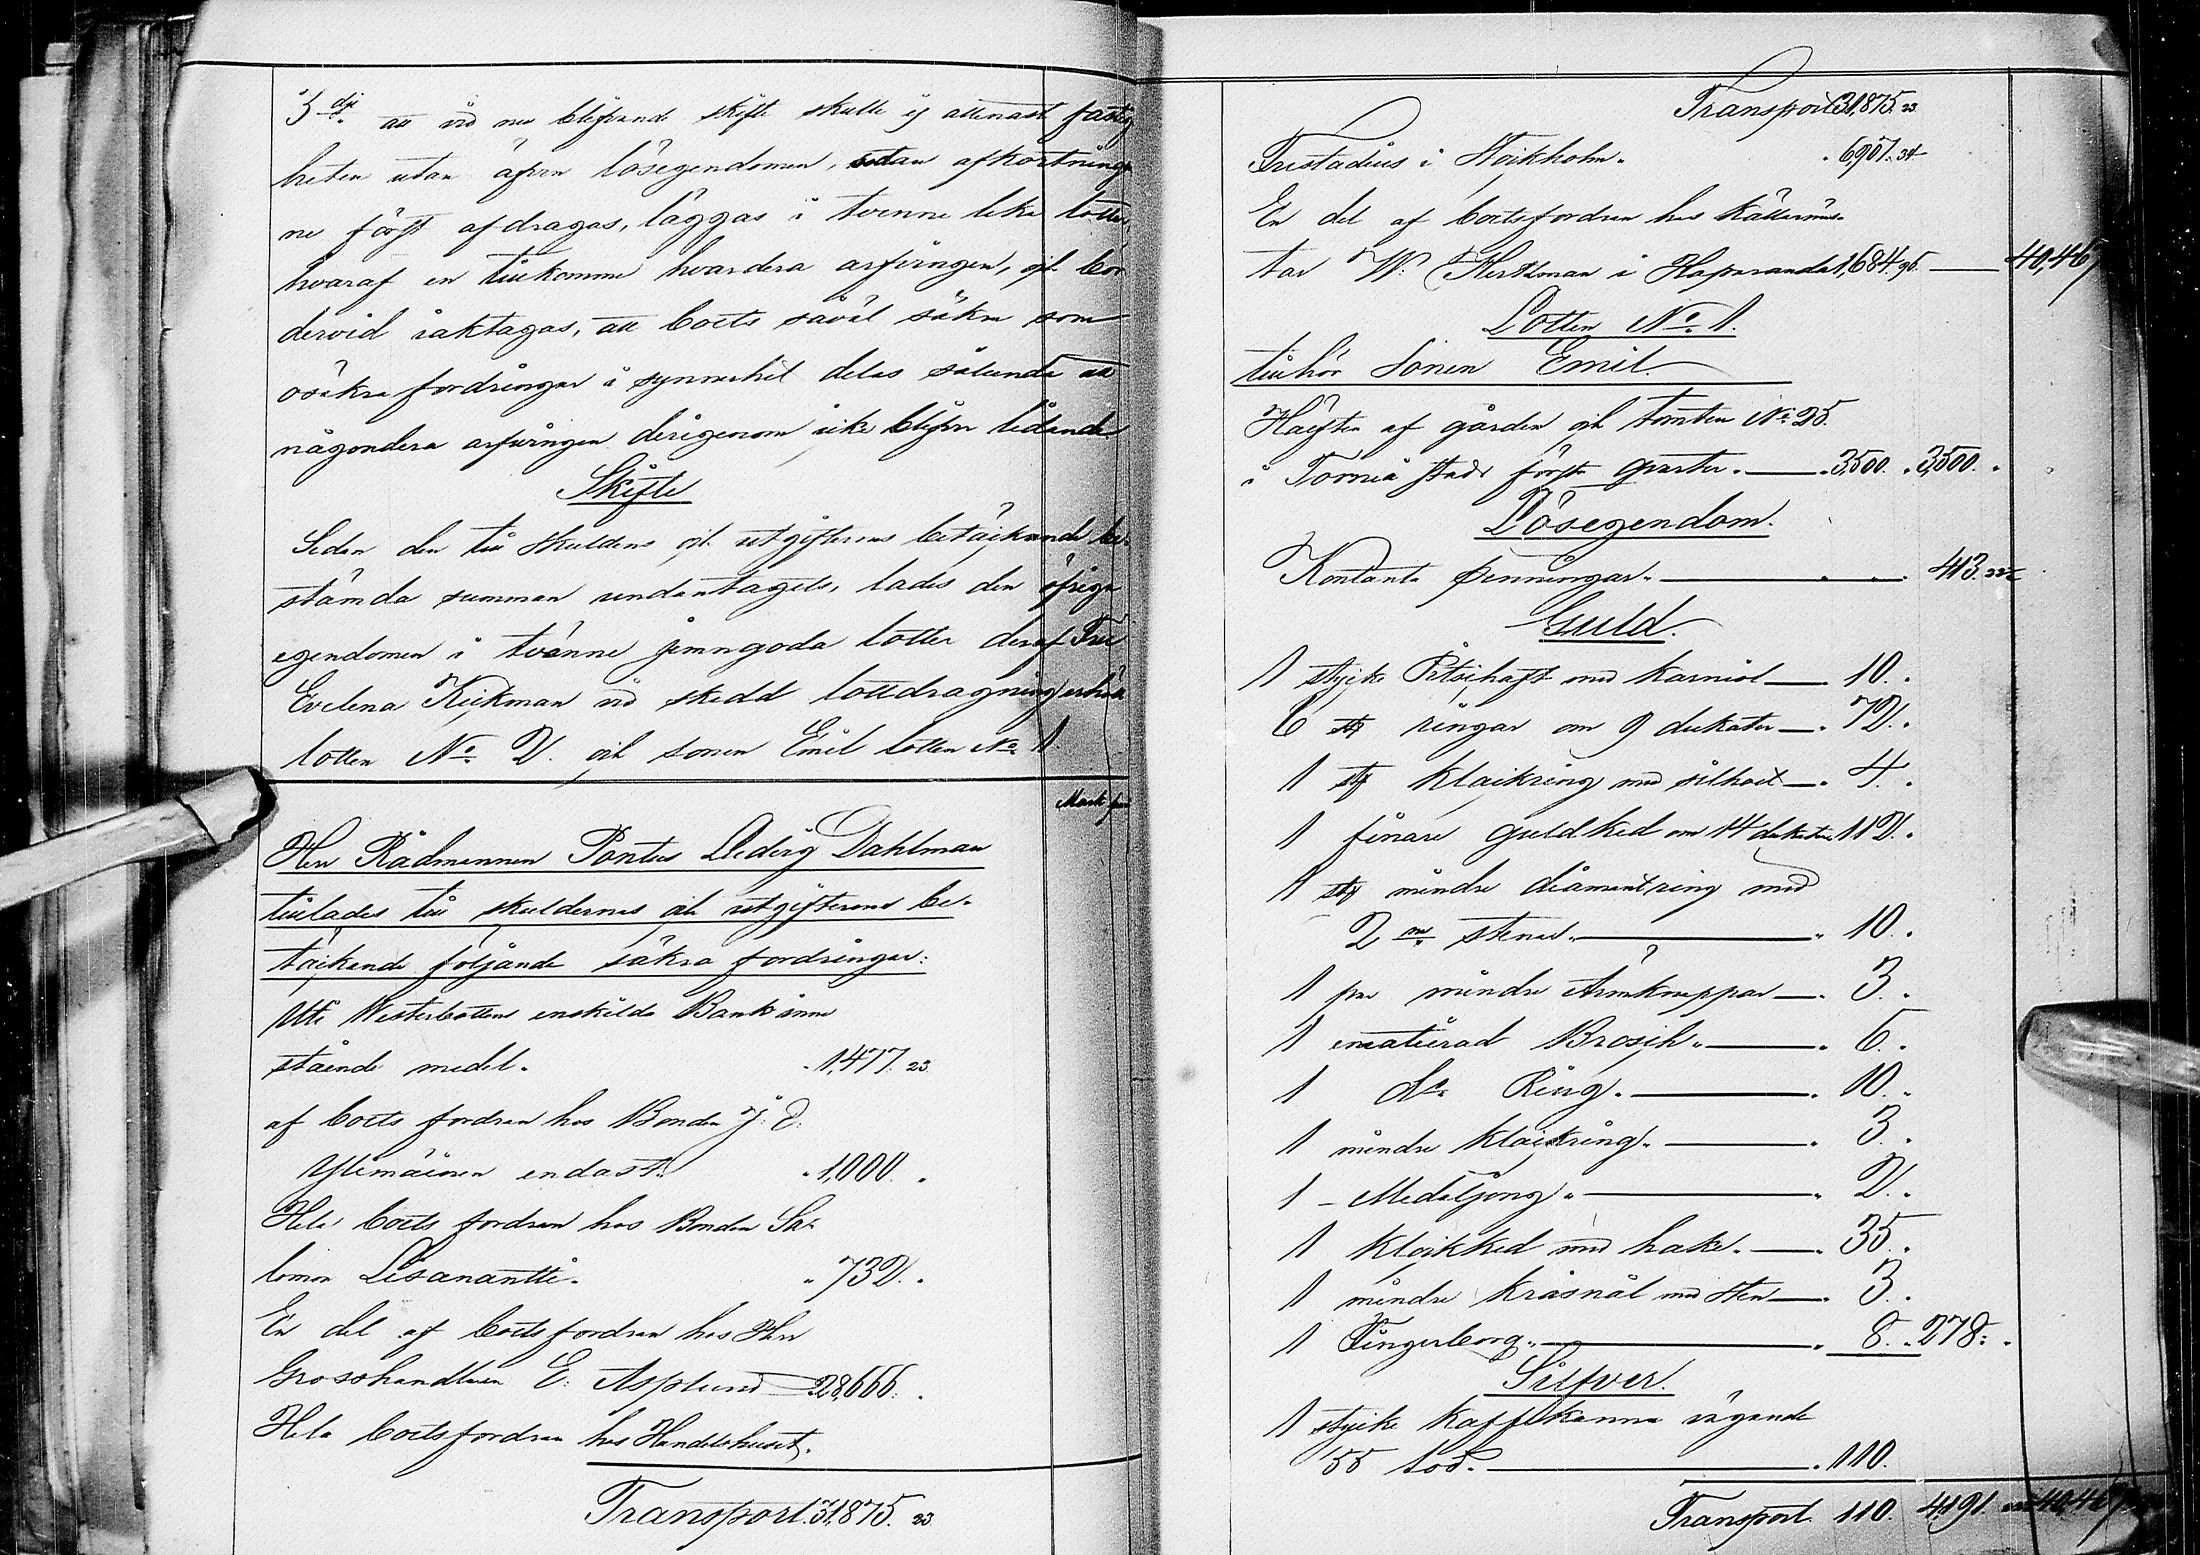 3dje att vid nu blifvande skifte skulle ej allenast fastig
heten utan äfven lösegendomen, sedan afkortninga
ne först afdragas, läggas i tvenne lika lotter,
hvaraf en tillkomme hvardera arfvingen, och bör
dervid iaktagas, att boets såväl säkra som
osäkra fordringar i synnerhet delas sålunda att
någondera arfvingen derigenom icke blifver lidande.
Skifte
Sedan den till skuldens och utgifternas betäckande be-
stämda summan undantagits, lades den öfriga
egendomen i tvänne jemngoda lotter deraf Fru
Evelena Keckman vid skedd lottdragning erhöll
lotten No 2. och sonen Emil lotten No 1.
Mark pi
Herr Rådmannen Pontus Dahlman
tillades till skuldernas och utgifternas be-
täckande följande säkra fordringar:
Uti Westerbottens enskilda Bank inne
stående medel. 1,477. 23.
af boets fordran hos Bonden J. E.
Ylimäinen endast. 1,000.
Hela boets fordran hos Bonden Sa-
lomon Liisanantti. 732.
En del af boets fordran hos Herr
Grosshandlaren E. Asplund 28,666.
Hela boets fordran hos Handelshuset.
Transport. 31,875. 23.
Transport 31,875. 23
Tristadius i Stockholm. 6,907. 34
En del af boets fordran hos Källarmäs-
tar W. Hertzman i Haparanda 1,684. 90. 40,467
Lotten No 1.
tillhör Sonen Emil.
Hälften af gården och tomten No 25.
i Torneå stads första qvarter. 3,500. 3,500.
Lösegendom.
Kontanta penningar. 413.
Guld.
1 stycke Pitschaft med karniol 10.
6 st ringar om 9 dukater 72.
1 st klackring med silhoet 4.
1 finare guldked om 14 dukater 112.
1 st mindre diamantring med
2ne stenar. 10.
1 par mindre Armknappar 3.
1 emaljerad Brosch. 6.
1 do Ring. 10.
1 mindre klackring. 3.
1 Medaljong. 2.
1 klockked med hake. 35.
1 mindre kråsnål med sten 3.
1 Fingerborg. 8. 278.
Silfver.
1 stycke kaffekanna vägande
55 lod. 110.
Transport. 110. 4,191. 40,467